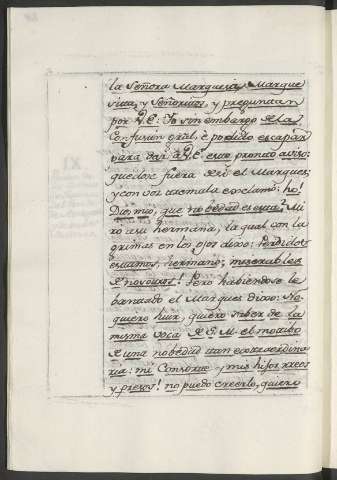 la Señora Marquesa, Marque
sitas, y Señoritas, y preguntan
por V.E: Yo sin embargo de la
Confusión gral, é podido escapar
para dar á V.E. este pronto aviso:
quedose fuera de sí el Marques;
y con voz tremula exclamó: ho!
Dios mio, que nobedad es esta? Mi
ro a su hermana, la qual con la
grimas en los ojos dixo: perdidos
estamos, hermano; miserables
de nosotros! Pero habiendose le
bantado el Marques dixo: No
quiero huir, quiero saber de la
misma voca de S. M. el motibo
de una nobedad tan extraordina
ria: mi Consorte y mis hijos rreos
y presos! no puedo creerlo, quiero